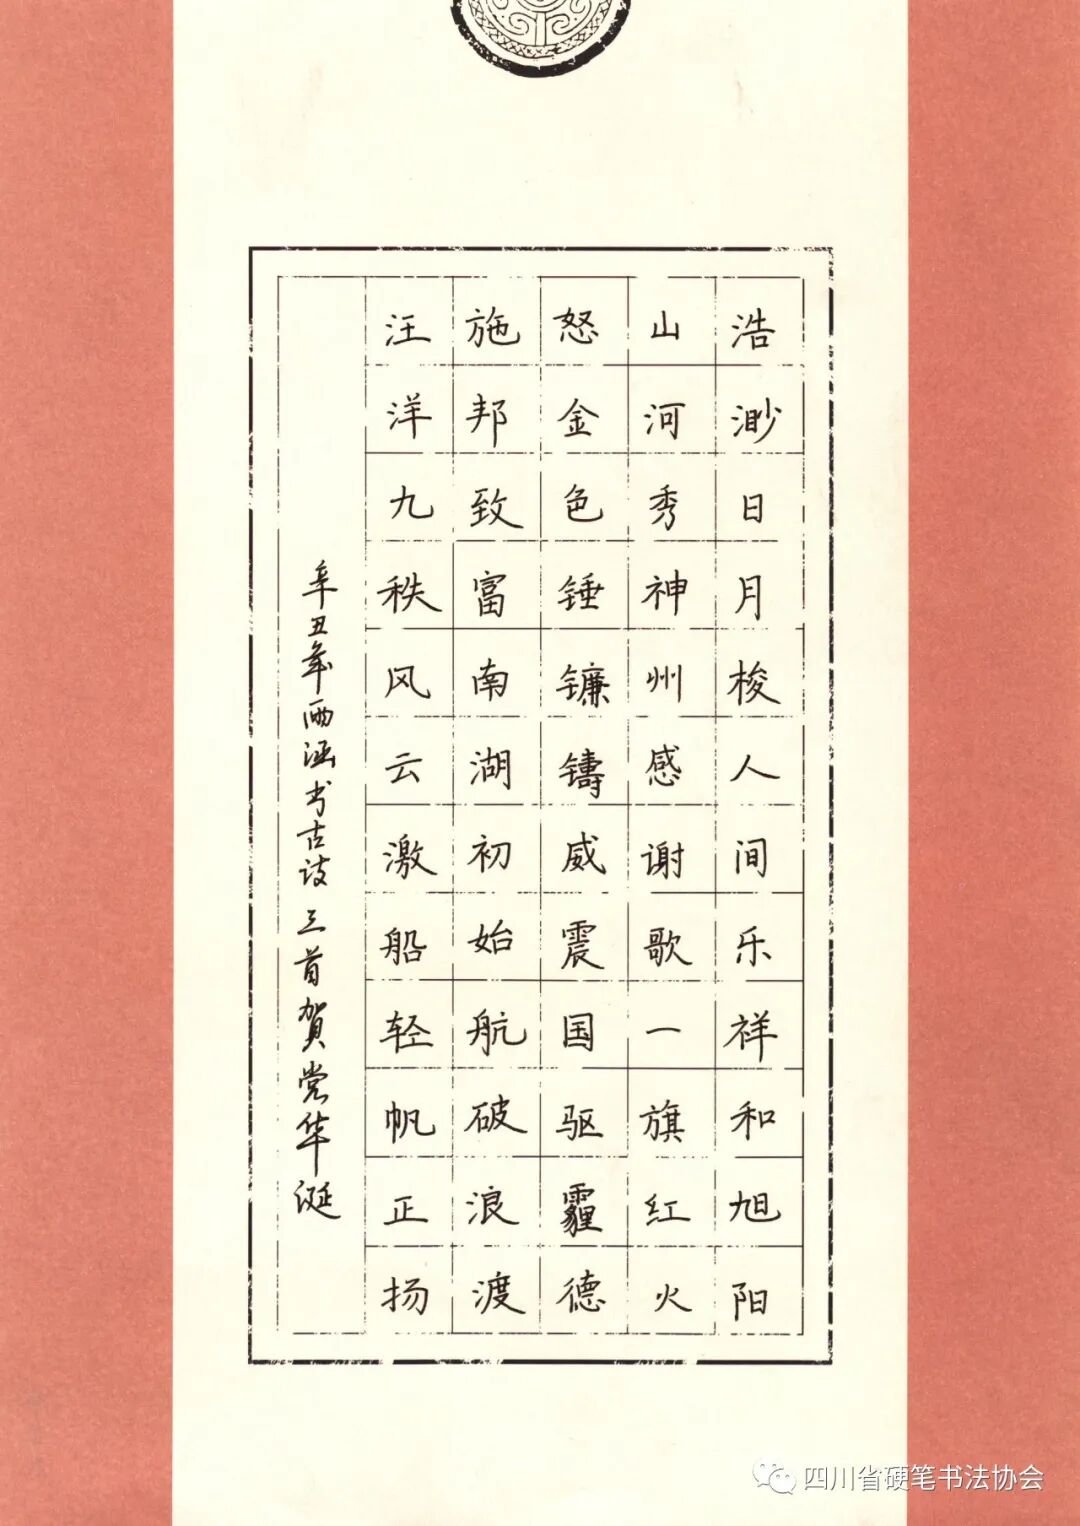 浩渺日月梭人间乐祥和旭阳
山河秀神州感谢歌一旗红火
怒金色锤镰铸威震国驱霾德
施邦致富南湖初始航破浪渡
汪洋九秩风云激船轻帆正扬
辛丑年雨涵书古诗三首贺党华诞
四川省硬笔书法协会